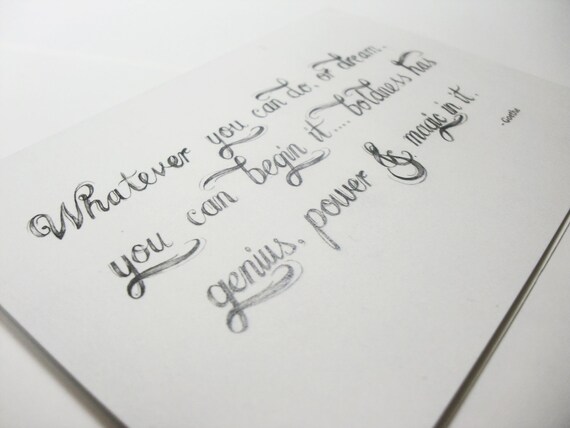 Whatever you can do, or dream,
you can begin it.... boldness has
genius, power & magic in it.
-Goethe